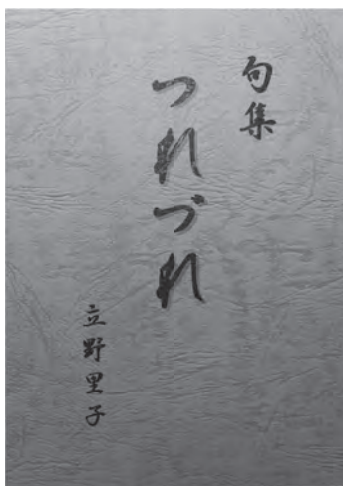 句集
つれづれ
立野里子